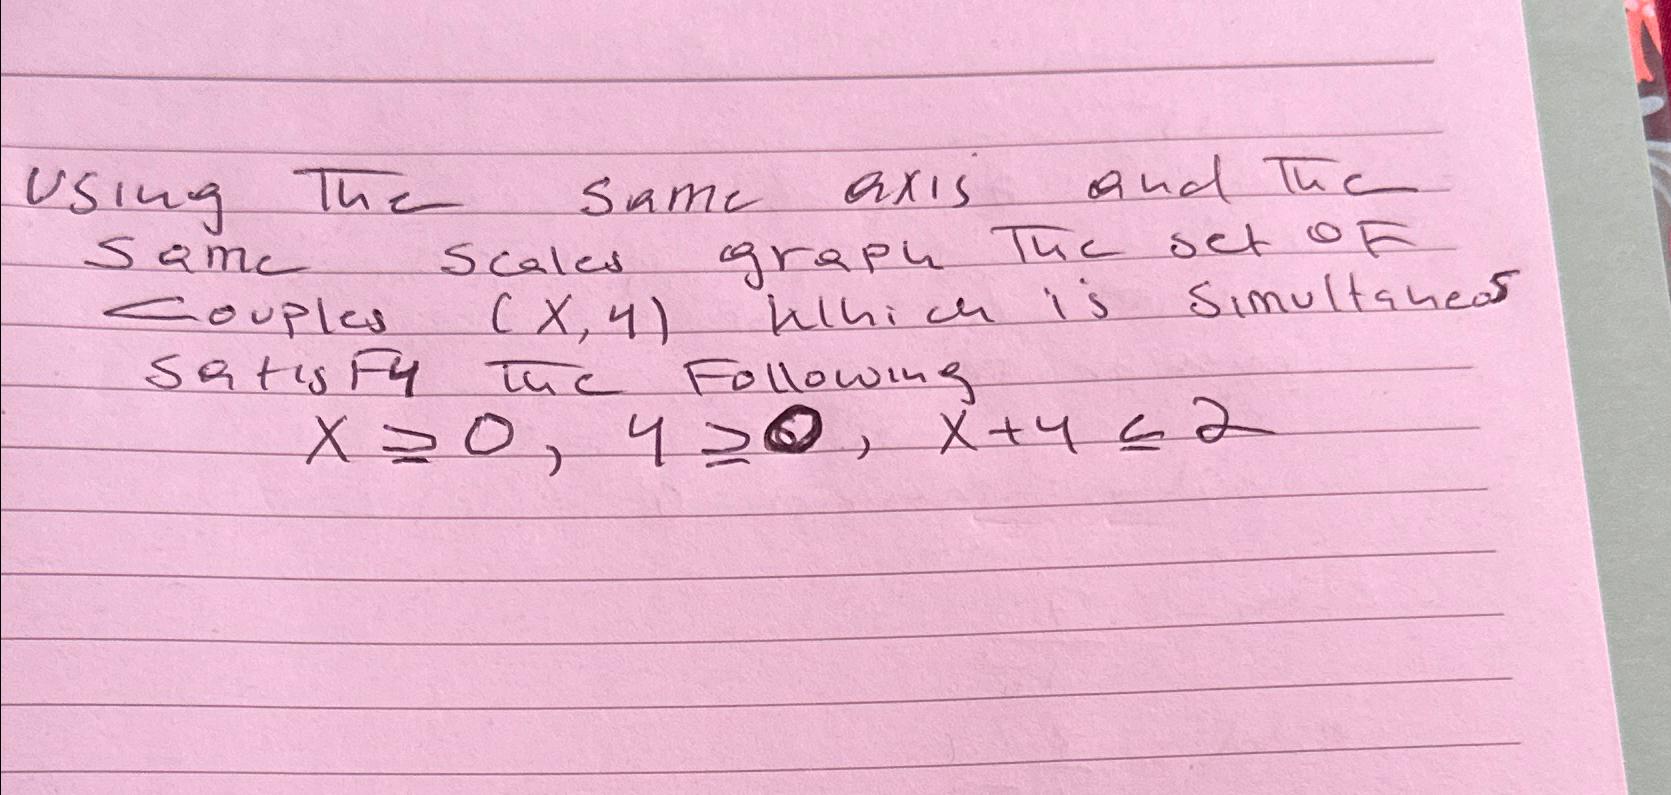 Using The same axis and The
same scales graph The set of
Couples (x,y) Which is simultaneos
satisfy The Following
x ≥ 0, y ≥ 0, x+y ≤ 2